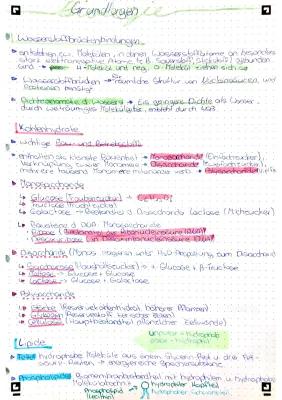 Grundlagen
Wasserstoffbrückenbindungen
entstehen zw. Molekülen, in denen Wasserstoffatome an besonders
stark elektronegative Atome (z.B. Sauerstoff, Stickstoff) gebunden
sind
Wasserstoffbrücken räumliche Struktur von
Proteinen
Dichteanomalie d. Wassers Eis geringere Dichte als Wasser,
durch weiträumiges Molekülgitter, entsteht durch WBB
Kohlenhydrate
wichtige Bau- und Betriebsstoffe
enthalten als kleinster Baustein Monosaccharide (Einfachzucker),
Verknüpfung zweier Monomere Disaccharide (Zweifachzucker),
mehrere tausend Monomere miteinander verb.
Monosaccharide
Glucose (Traubenzucker)
Fructose (Fruchtzucker)
Galactose Bestandteil d. Disaccharids Lactose (Milchzucker)
Bausteine d. DNA Monosaccharide
Ribose Bestandteil der Ribonucleinsäure (RNA)
Desoxyribose in Desoxyribonucleinsäure (DNA)
Disaccharide (Monos. reagieren unter H₂O-Abspaltung zum Disaccharid)
Saccharose (Haushaltszucker) Glucose + β-Fructose
Maltose Glucose + Glucose
Lactose Glucose + Galactose
Polysaccharide
Stärke (Reservekohlenhydrat höherer Pflanzen)
Glykogen
Cellulose (Hauptbestandteil pflanzlicher Zellwände)
unpolar = hydrophob
polar = hydrophil
Lipide
Fette hydrophobe Moleküle aus einem Glycerin-Rest u. drei Fett-
säure-Resten
Phospholipide Biomembranbestandteil mit hydrophilem u. hydrophobem
Molekülbereich
Phospholipid hydrophiler Kopfteil
Lecithin hydrophober Schwanzteil